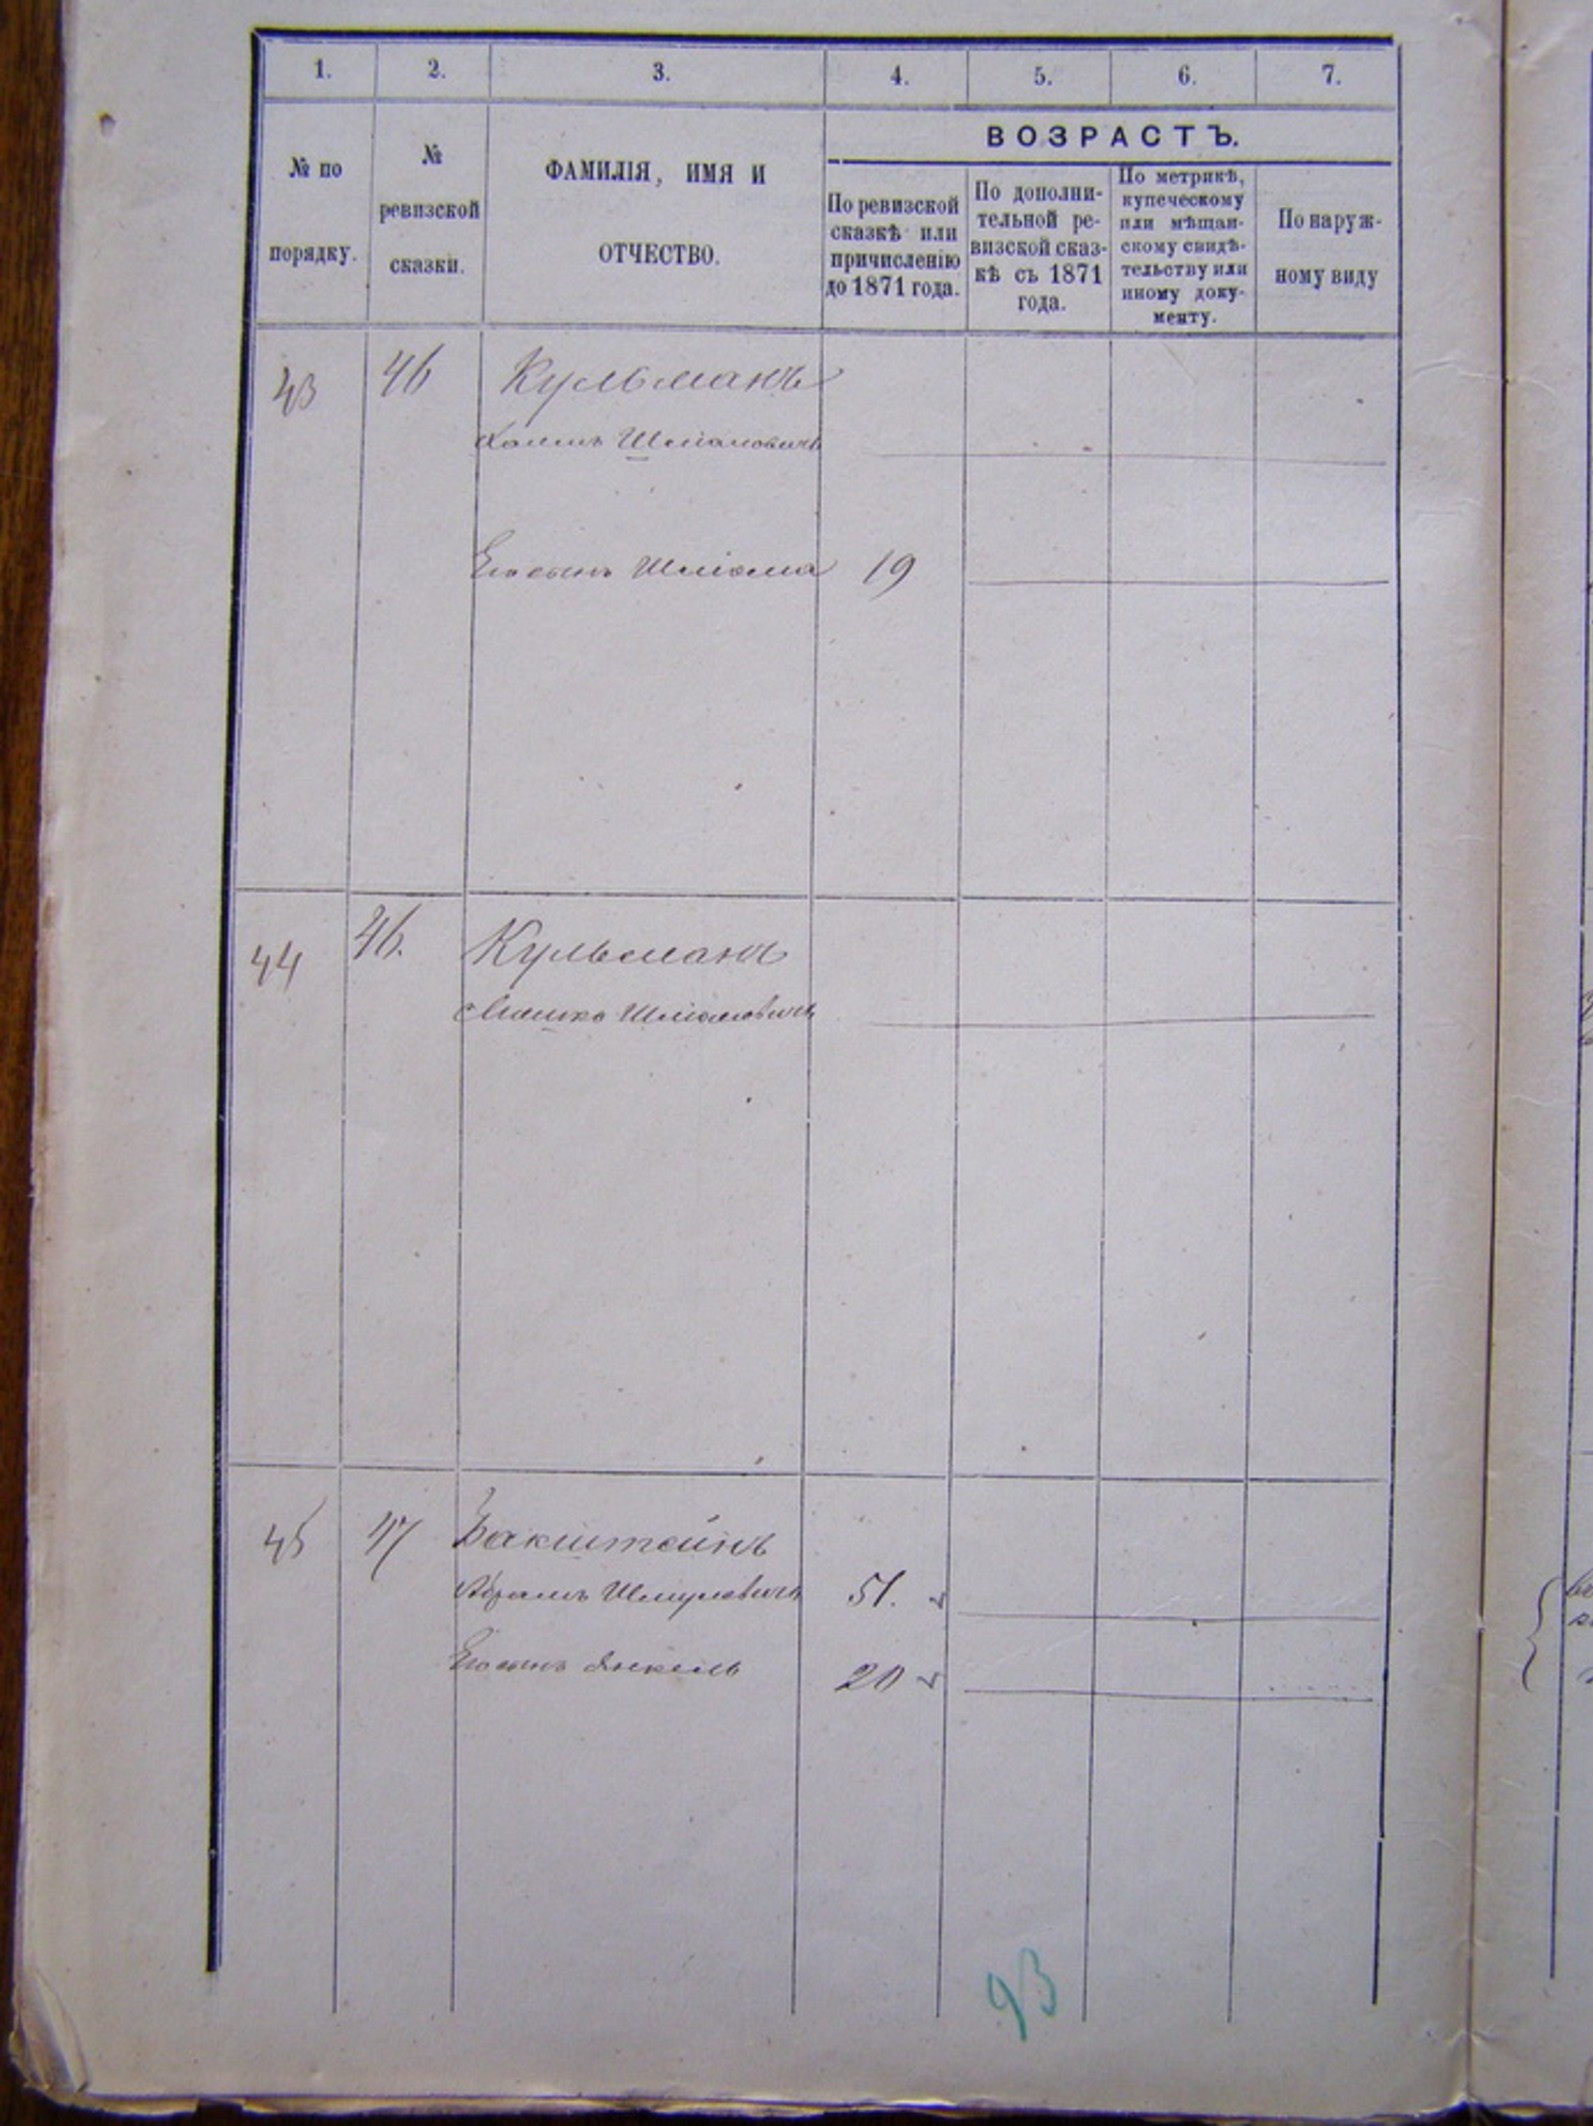 1. 2. 3. 4. 5. 6. 7.
№ по порядку.
№ ревизской сказки.
ФАМИЛІЯ, ИМЯ И
ОТЧЕСТВО.
ВОЗРАСТЪ.
По ревизской
сказкѣ или
причисленію
до 1871 года.
По дополни-
тельной ре-
визской сказ-
кѣ съ 1871
года.
По метрикѣ,
купеческому
или мѣщан-
скому свидѣ-
тельству или
иному доку-
менту.
По наруж-
ному виду
43 46 Кульманъ
Хаимъ Шліомовичъ
Его сынъ Шліома 19
44 46. Кульманъ
Мошко Шліомовичъ
45 47 Бакштейнъ
Абрамъ Шмулевичъ 51.
Его сынъ Янкель 20
93